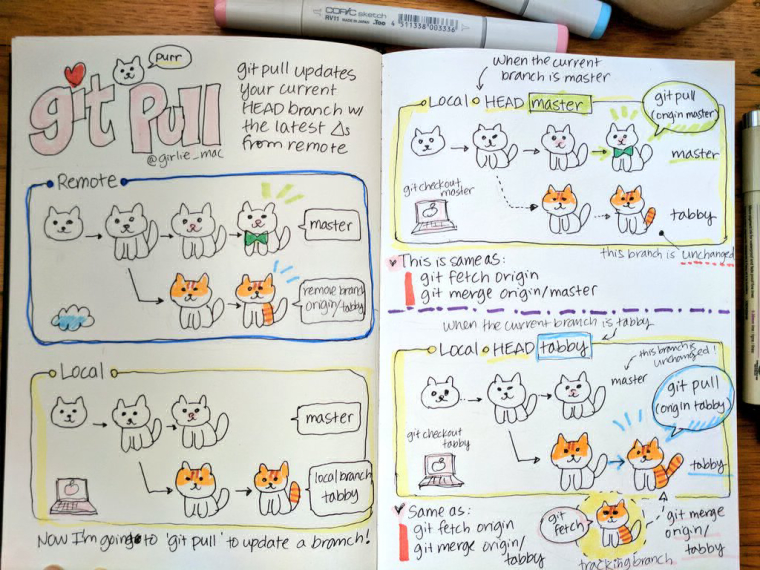 COPIC sketch
RV11 MADE IN JAPAN .Too
4 511338 003336
purr
git pull
@girlie_mac
git pull updates
your current
HEAD branch w/
the latest Δs
from remote
Remote
master
remote branch
origin/tabby
Local
master
local branch
tabby
Now I'm going to 'git pull' to update a branch!
when the current
branch is master
Local HEAD master
git pull
(origin master)
master
git checkout
master
tabby
this branch is unchanged
This is same as:
git fetch origin
git merge origin/master
when the current branch is tabby
Local HEAD tabby
this branch is
unchanged!
master
git pull
(origin tabby)
git checkout
tabby
tabby
Same as:
git fetch origin
git merge origin/
tabby
git
fetch
git merge
origin/
tabby
tracking branch